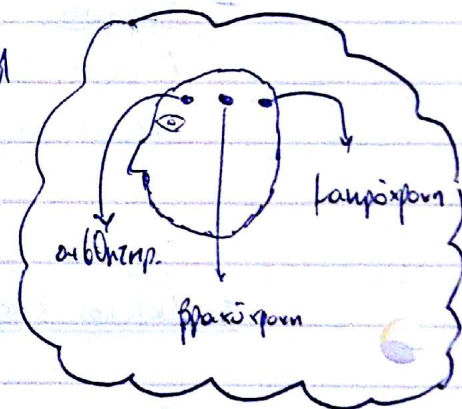 μακρόχρονη
αισθητηρ.
βραχύχρονη